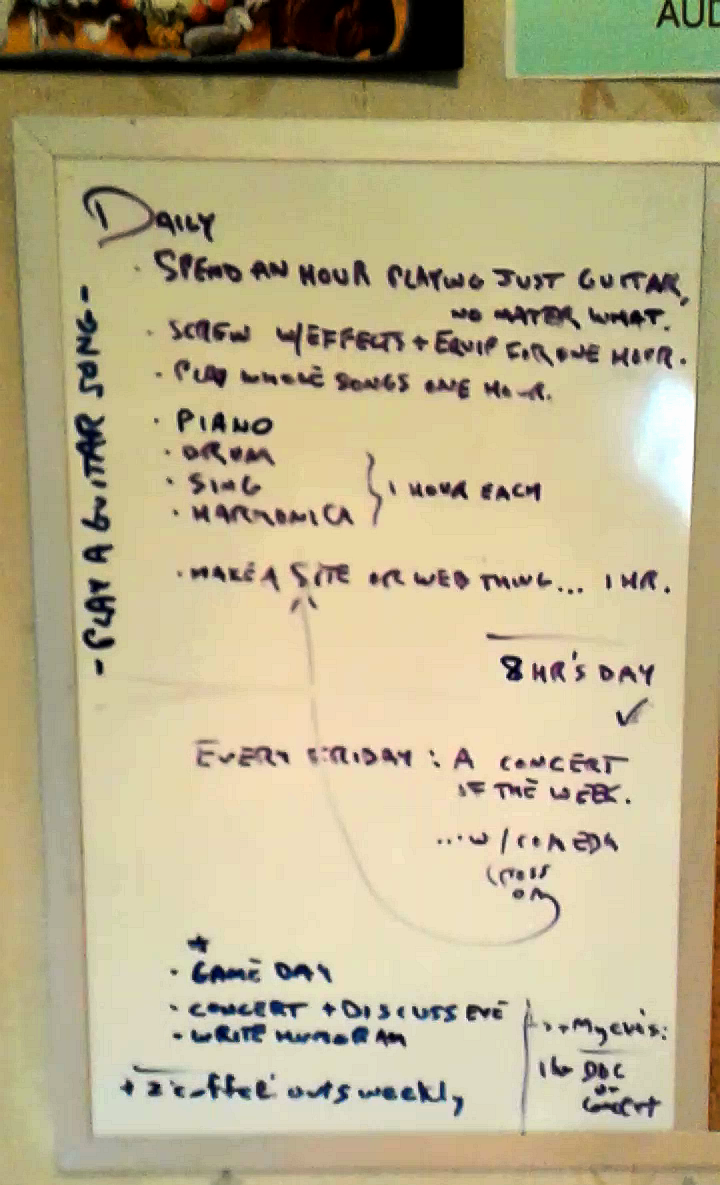 AUD
DAILY
- PLAY A GUITAR SONG -
· SPEND AN HOUR PLAYING JUST GUITAR,
NO MATER WHAT.
· SCREW W/EFFECTS + EQUIP FOR ONE HOUR.
· PLAY WHOLE SONGS ONE HOUR.
· PIANO
· DRUM
· SING
· HARMONICA
} 1 HOUR EACH
· MAKE A SITE OR WEB THING... 1 HR.
8 HR'S DAY
✓
EVERY FRIDAY: A CONCERT
OF THE WEEK.
...W/COMEDY
CROSS
ON
* 
· GAME DAY
· CONCERT + DISCUSS EVE
· WRITE HUMOR AM
+ 2 coffee outs weekly
DOC
or
concert